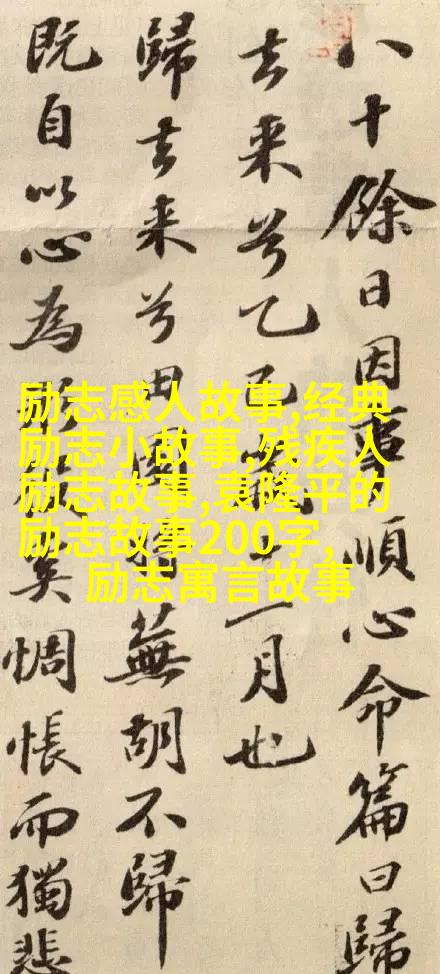 八十餘日因事順心命篇曰歸
去来兮乙巳歲十一月也
歸去来兮田園將蕪胡不歸
既自以心為形役奚惆悵而獨悲
励志感人故事,经典
励志小故事,残疾人
励志故事,袁隆平的
励志故事200字,
励志寓言故事